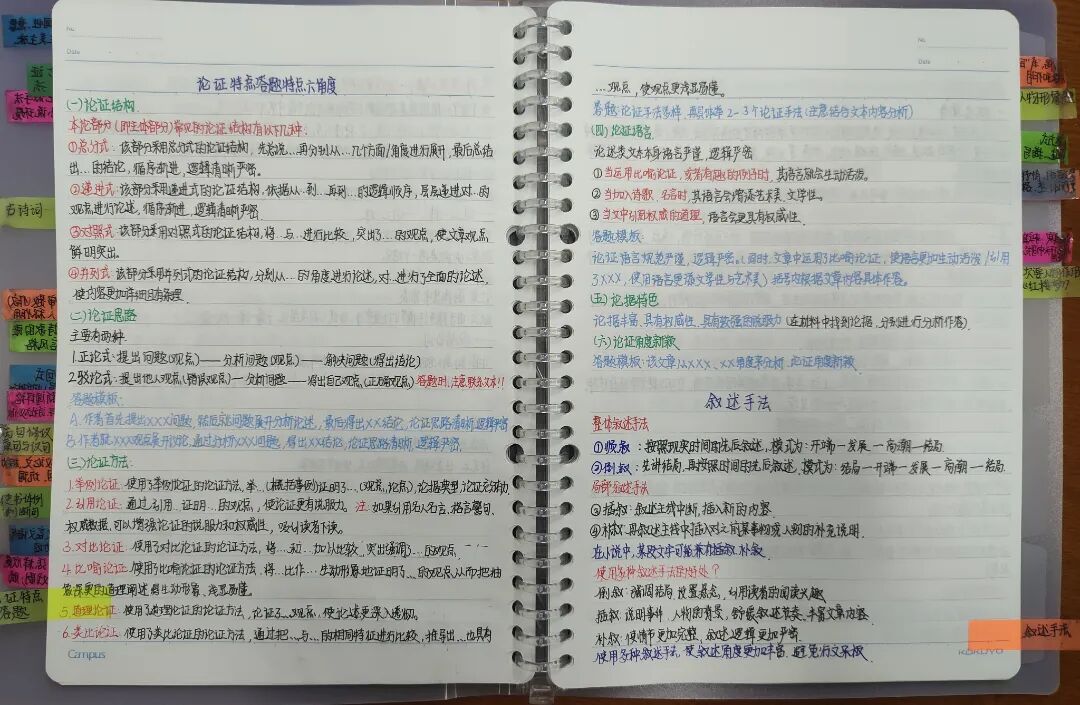 No.
Date
论证特点答题特点六角度
(一)论证结构
本论部分(即主体部分)常见的论证结构有以下几种:
①总分式:该部分采用总分式的论证结构,先总说…再分别从…几个方面/角度进行展开,最后总结出
…的结论,循序渐进,逻辑清晰严密。
②递进式:该部分采用递进式的论证结构,依据从…到…再到…的逻辑顺序,层层递进对…的
观点进行论述,循序渐进,逻辑清晰严密
③对照式:该部分采用对照式的论证结构,将…与…进行比较,突出了…的观点,使文章观点
鲜明突出。
④并列式:该部分采用并列式的论证结构,分别从…的角度进行论述,对…进行了全面的论述,
使内容更加详细且有条理
(二)论证思路
主要有两种
1.正论式:提出问题(观点)——分析问题(观点)——解决问题(得出结论)
2.驳论式:提出他人观点(错误观点)—分析问题——得出自己观点(正确观点) 答题时,注意联系文本!!
答题模板:
A.作者首先提出XXX问题,然后就问题展开分析论述,最后得出XX结论,论证思路清晰,逻辑严密
B.作者就XXX观点展开讨论,通过分析XXX问题,得出XX结论,论证思路清晰,逻辑严密,
(三)论证方法:
1.举例论证:使用了举例论证的论证方法,举…(概括事例)证明了…(观点,论点),论据典型,论证充分有力
2.引用论证:通过引用…证明…的观点,使论证更有说服力。注:如果引用名人名言、格言警句、
权威数据,可以增强论证的说服力和权威性,吸引读者下读。
3.对比论证:使用了对比论证的论证方法,将…和…加以比较,突出强调了…的观点,
4.比喻论证:使用了比喻论证的论证方法,将…比作…生动形象地证明了…的观点,从而把抽
象深奥的道理阐述得生动形象、浅显易懂。
5.道理论证:使用了道理论证的论证方法,论证了…观点,使论述更深入透彻。
6.类比论证:使用了类比论证的论证方法,通过把…与…的相同特征进行比较,推导出…也具有
Campus
No.
Date
…观点,使观点更浅显易懂。
答题:论证手法多样,再具体举2-3个论证手法(注意结合文本内容分析)
(四)论证语言
论述类文本本身语言严谨,逻辑严密
①当运用比喻论证,或者有趣的例子时,其语言就会生动活泼。
②当加入诗歌、名言时,其语言会增添艺术美、文学性。
③当文中引用权威的道理,语言会更具有权威性
答题模板:
论证语言规范严谨,逻辑严密。(同时,文章中运用了比喻论证,使语言更加生动活泼/引用
了XXX,使用语言更添文学性与艺术美)括号内根据文章内容具体作答。
(五)论据特色
论据丰富,具有权威性,具有较强的说服力(在材料中找到论据,分别进行分析作答)
(六)论证角度新颖
答题模板:该文章从XXX、XX角度来分析,论证角度新颖
叙述手法
整体叙述手法
①顺叙:按照现实时间的先后叙述,模式为:开端—发展—高潮—结局
②倒叙:先讲结局,再按照时间的先后叙述,模式为:结局—开端—发展—高潮—结局
局部叙述手法
③插叙:叙述主线中断,插入新的内容
④补叙:再叙述主线中插入对之前某事物或人物的补充说明
在小说中,某段文字可能兼有插叙、补叙
使用多种叙述手法的好处?
倒叙:强调结局,设置悬念,引用读者的阅读兴趣
插叙:说明事件、人物的背景,舒缓叙述节奏,丰富文章内容
补叙:使情节更加完整,叙述逻辑更加严密
使用多种叙述手法,使叙述角度更加丰富,避免行文呆板
KOKUYO
叙述手法
书诗词
证特点
答题